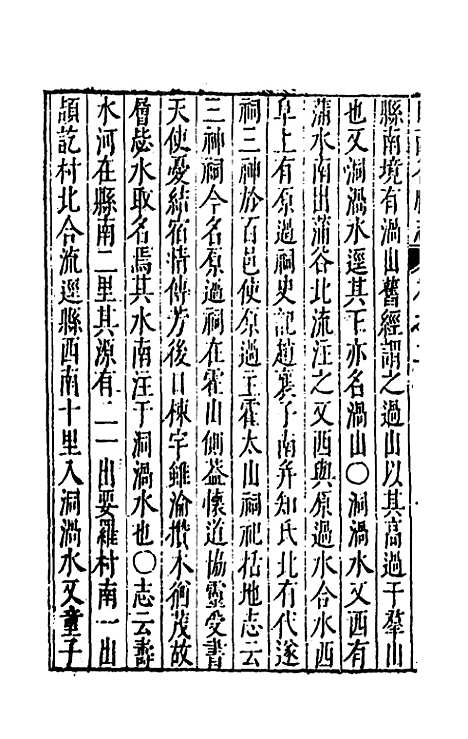 縣南境有渦山舊經謂之過山以其高過于羣山
也又洞渦水逕其下亦名渦山〇洞渦水又西有
蒲水南出蒲谷北流注之又西與原過水合水西
阜上有原過祠史記趙襄子南并知氏北有代遂
祠三神於百邑使原過主霍太山祠祀括地志云
三神祠今名原過祠在霍山側葢懷道協靈受書
天使憂結宿情傳芳後日棟宇雖淪攢木猶茂故
層巒水取名焉其水南注于洞渦水也〇志云壽
水河在縣南二里其源有二一出要羅村南一出
頡訖村北合流逕縣西南十里入洞渦水又童子